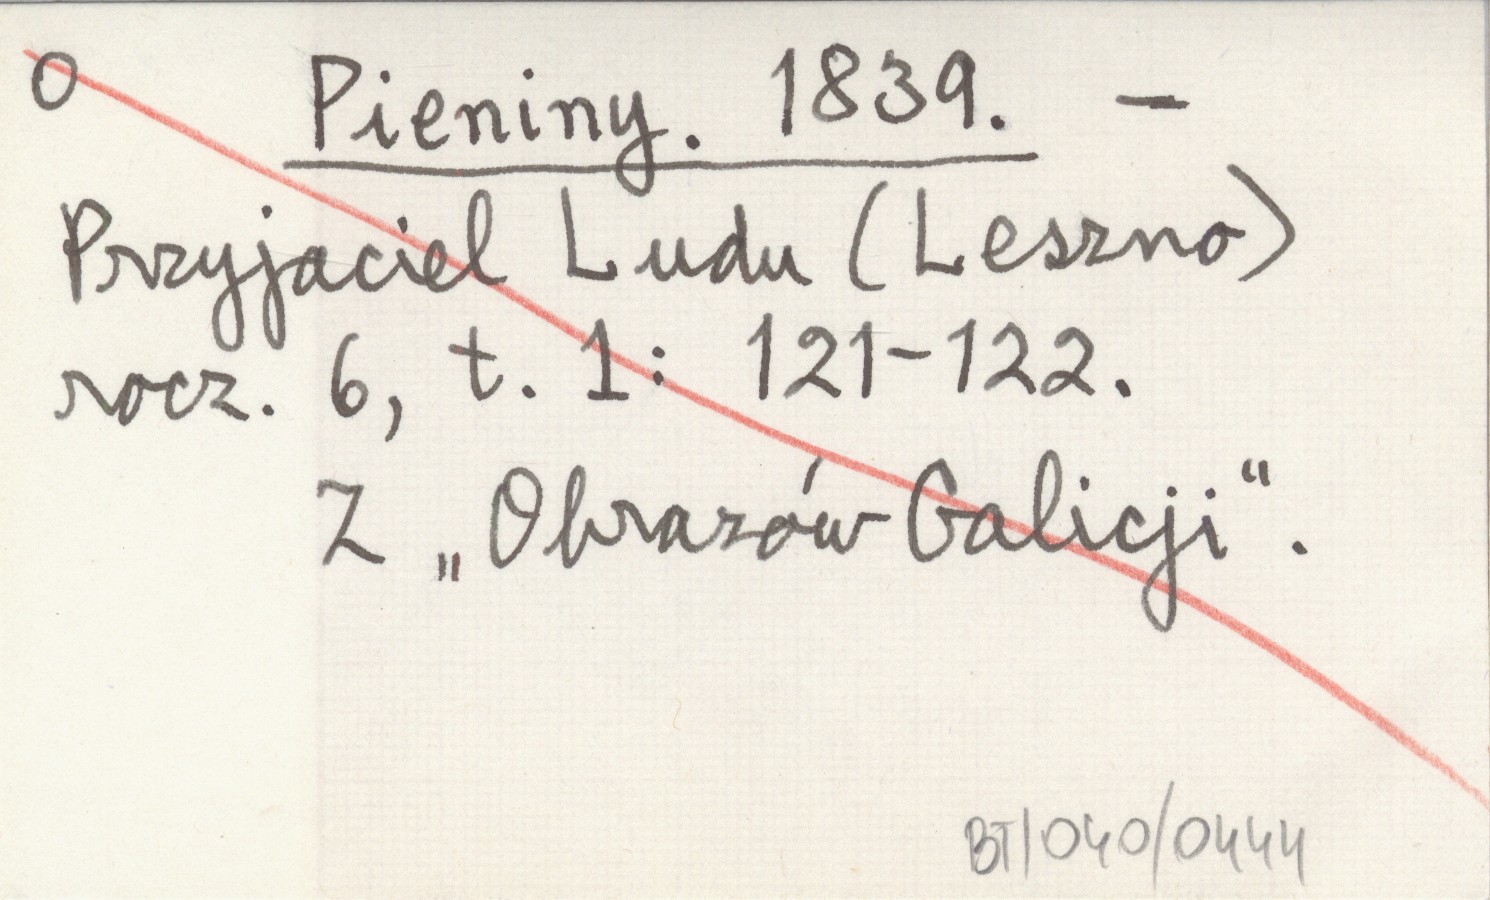 O Pieniny. 1839. –
Przyjaciel Ludu (Leszno)
rocz. 6, t. 1: 121-122.
Z „Obrazów Galicji“.
BT/040/0444